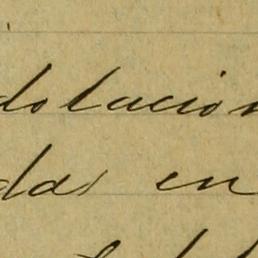 dotacion
das en